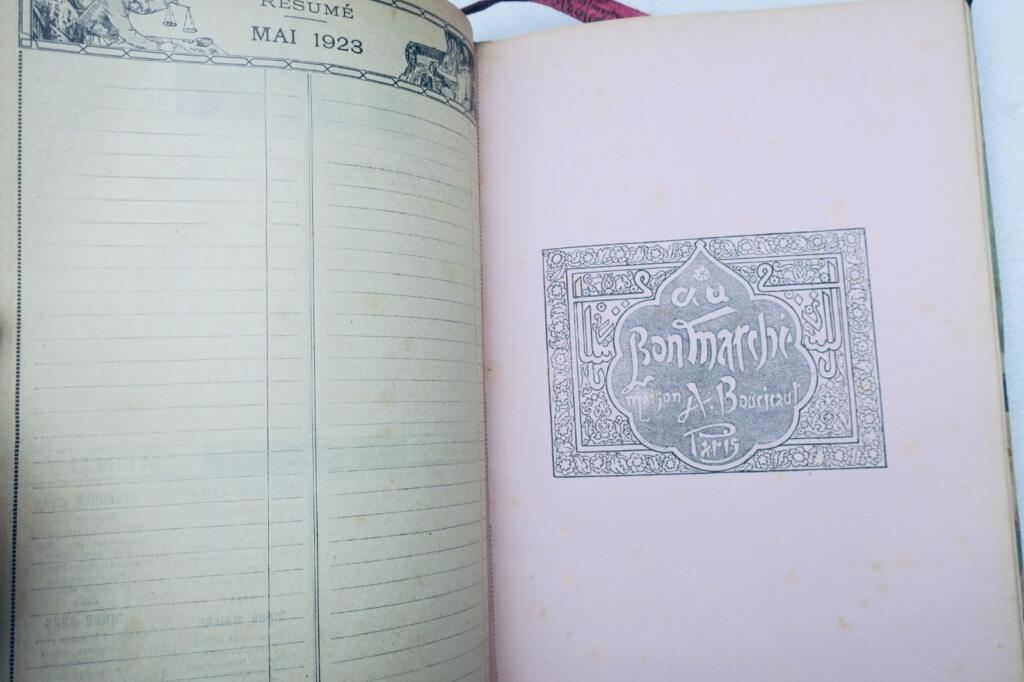 RÉSUMÉ
MAI 1923
au
Bon Marché
Maison A. Boucicaut
Paris